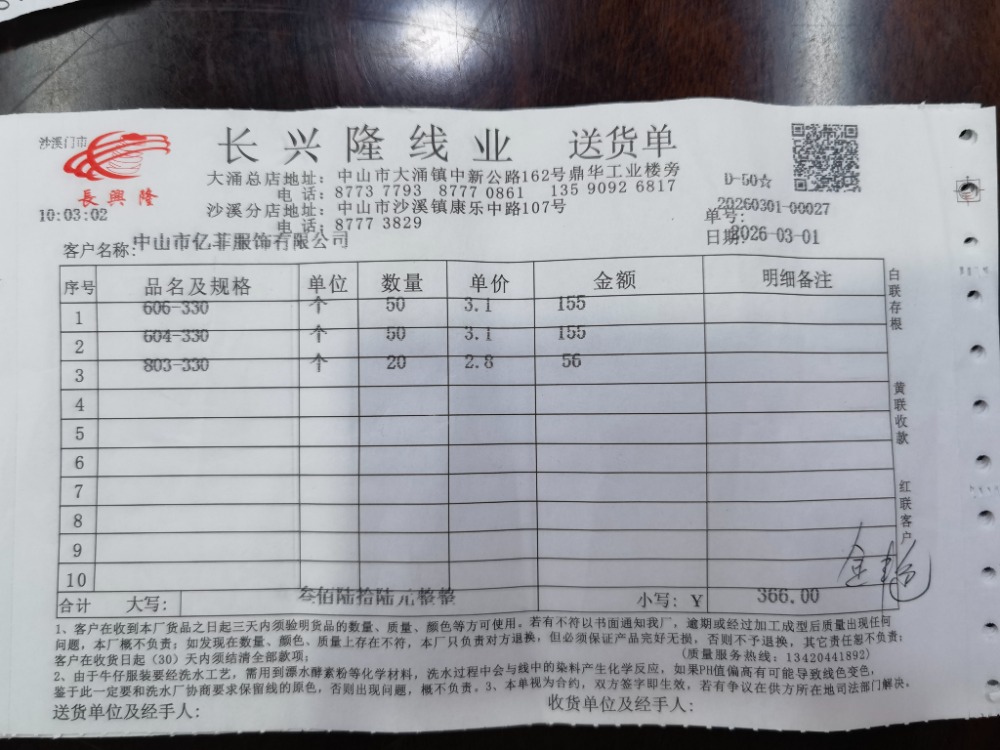 沙溪门市
長興隆
10:03:02
长兴隆线业 送货单
大涌总店地址：中山市大涌镇中新公路162号鼎华工业楼旁
电话：8773 7793 8777 0861 135 9092 6817
沙溪分店地址：中山市沙溪镇康乐中路107号
电话：8777 3829
D-50☆
20260301-00027
单号：
日期：2026-03-01
客户名称：中山市亿菲服饰有限公司
序号 品名及规格 单位 数量 单价 金额 明细备注
1 606-330 个 50 3.1 155
2 604-330 个 50 3.1 155
3 803-330 个 20 2.8 56
4
5
6
7
8
9
10
合计 大写： 叁佰陆拾陆元整整 小写：Y 366.00
白联存根
黄联收款
红联客户
1、客户在收到本厂货品之日起三天内须验明货品的数量、质量、颜色等方可使用。若有不符以书面通知我厂，逾期或经过加工成型后质量出现任何
问题，本厂概不负责；如发现在数量、颜色、质量上存在不符，本厂只负责对方退换，但必须保证产品完好无损，否则不予退换，其它责任恕不负责；
客户在收货日起（30）天内须结清全部款项； （质量服务热线：13420441892）
2、由于牛仔服装要经洗水工艺，需用到漂水酵素粉等化学材料，洗水过程中会与线中的染料产生化学反应，如果PH值偏高有可能导致线色变色，
鉴于此一定要和洗水厂协商要求保留线的原色，否则出现问题，概不负责。3、本单视为合约，双方签字即生效，若有争议在供方所在地司法部门解决。
送货单位及经手人： 收货单位及经手人：